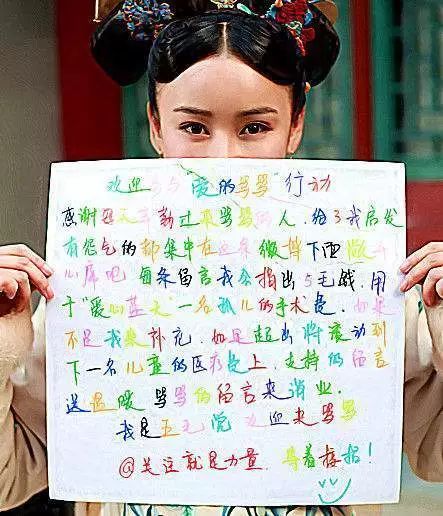 欢迎参与"爱的骂骂"行动
感谢每天辛勤过来骂骂的人,给了我启发
有怨气的都集中在这条微博下面做开
心库吧 每条留言我会捐出5毛钱.用
于"爱心蓝天"一名孤儿的手术费.如果
不足我来补充.如是超出将滚动到
下一名儿童的医疗费上.支持的留言
送温暖 骂骂的留言来消业.
我是五毛党 欢迎来骂骂
@关注就是力量. 等着接招!